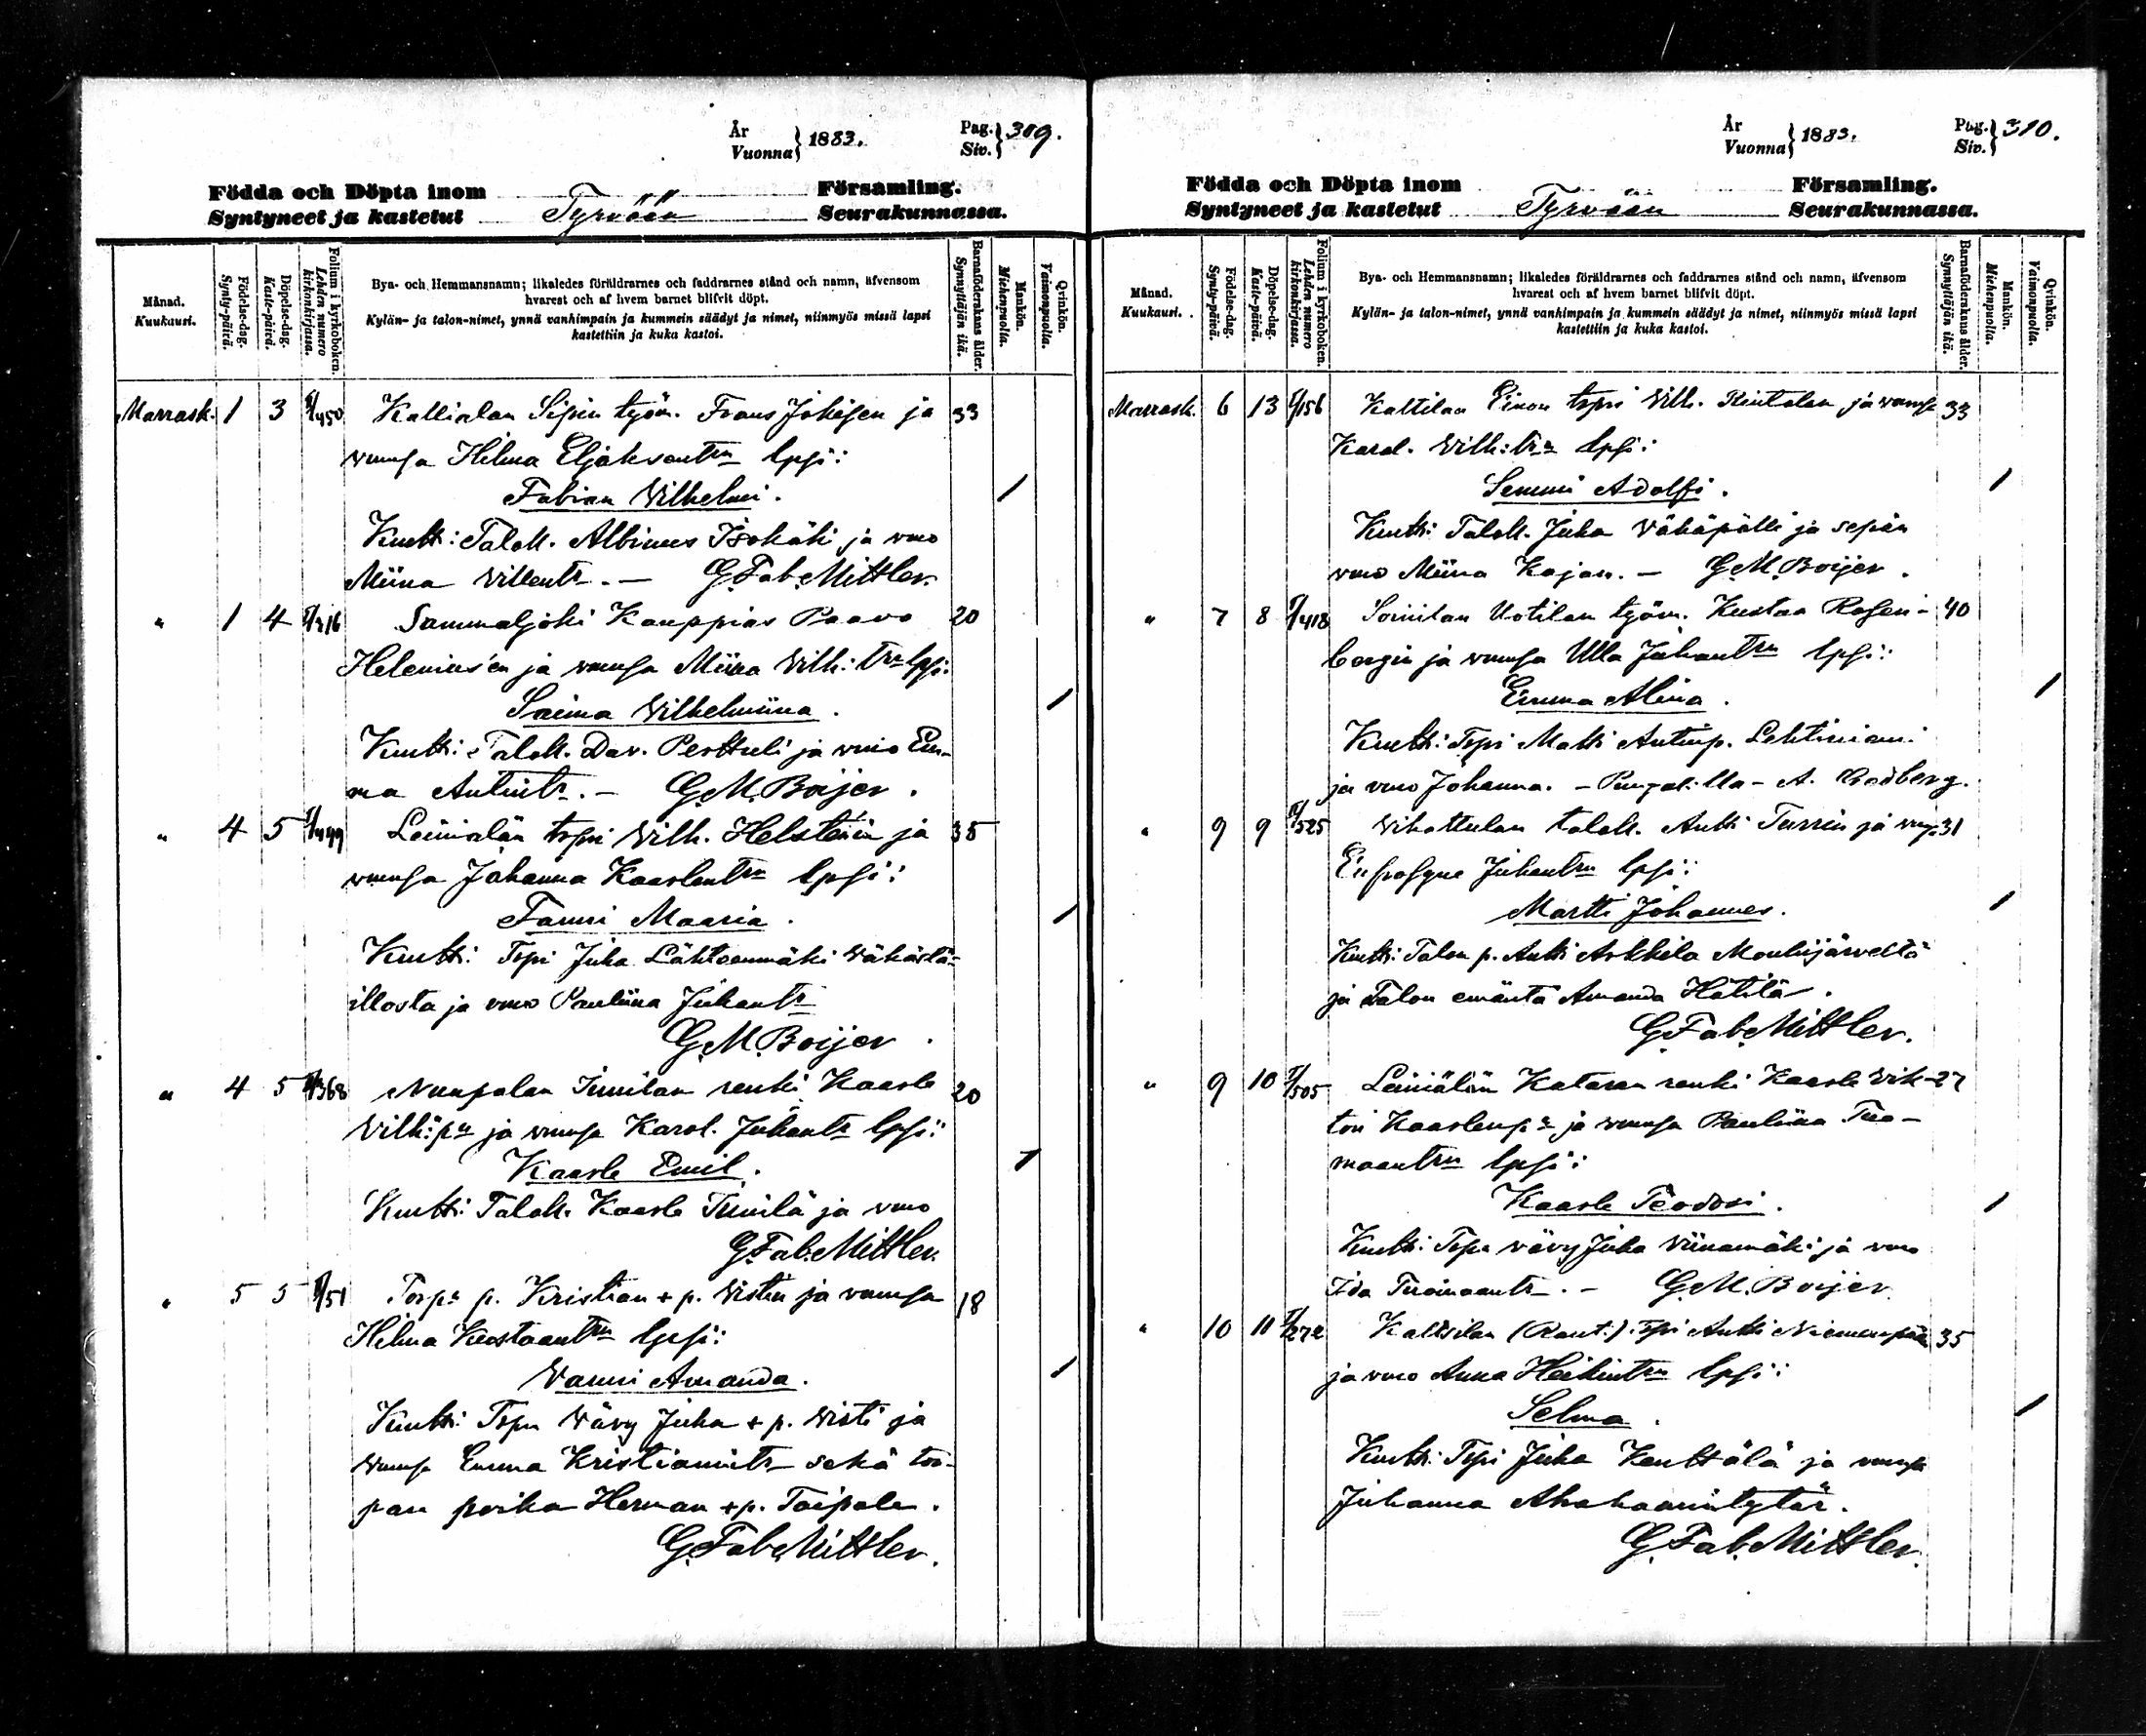 År
Vuonna } 1883. Pag. Siv. } 309.
Födda och Döpta inom Församling.
Syntyneet ja kastetut Tyrvään Seurakunnassa.
Månad. Kuukausi.
Födelse-dag. Synty-päivä.
Döpelse-dag. Kaste-päivä.
Folium i kyrkoboken. Lehden numero kirkonkirjassa.
Bya- och Hemmansnamn; likaledes föräldrarnes och faddrarnes stånd och namn, äfvensom
hvarest och af hvem barnet blifvit döpt.
Kylän- ja talon-nimet, ynnä vanhimpain ja kummein säädyt ja nimet, niinmyös missä lapsi
kastettiin ja kuka kastoi.
Barnaföderskans ålder. Synnyttäjän ikä.
Mankön. Miehenpuolia.
Qvinkön. Vaimonpuolia.
Marrask. 1 3 450 Kallialan Sipin työm. Frans Johisen ja 33
vmsa Helma Eljaksentrn lpsi:
Fabian Vilhelmi. /
Kmtt: Talok. Albinus Isokäki ja vmo
Miina Villentr. — G. Fab. Mittler.
" 1 4 316 Sammaljoki Kauppias Paavo 20
Helenius'en ja vmsa Miina Vilh: trn lpsi:
Saima Vilhelmiina. /
Kmtt: Talok. Dav. Perttuli ja vmo Em-
ma Antintr. — G. M. Boijer.
" 4 5 499 Leiniälän tspri Vilh. Helstenin ja 35
vmnsa Johanna Kaarlentrn lpsi:
Fanni Maaria. /
Kmtt: Tspi Juha Lähteenmäki Vähästä-
illosta ja vmo Pauliina Juhantr
G. M. Boijer.
" 4 5 368 Nuupalan Junilan renki Kaarle 20
Vilh:pn ja vmnsa Karol. Juhantr lpsi:
Kaarle Emil. /
Kmtt: Talok. Kaarle Junila ja vmo
G. Fab. Mittler.
" 5 5 51 Torpn p. Kristian + p. Vistin ja vmnsa 18
Helma Kustaantrn lpsi:
Vanni Amanda. /
Kmtt: Tspn Vävy Juha + p. Visti ja
vmnsa Emma Kristianintr sekä tor-
pan poika Herman + p. Taipale.
G. Fab. Mittler.
År
Vuonna } 1883. Pag. Siv. } 310.
Födda och Döpta inom Församling.
Syntyneet ja kastetut Tyrvään Seurakunnassa.
Månad. Kuukausi.
Födelse-dag. Synty-päivä.
Döpelse-dag. Kaste-päivä.
Folium i kyrkoboken. Lehden numero kirkonkirjassa.
Bya- och Hemmansnamn; likaledes föräldrarnes och faddrarnes stånd och namn, äfvensom
hvarest och af hvem barnet blifvit döpt.
Kylän- ja talon-nimet, ynnä vanhimpain ja kummein säädyt ja nimet, niinmyös missä lapsi
kastettiin ja kuka kastoi.
Barnaföderskans ålder. Synnyttäjän ikä.
Mankön. Miehenpuolia.
Qvinkön. Vaimonpuolia.
Marrask. 6 13 156 Kaltilan Einon tspri Vilh. Rintalan ja vmnsa 33
Karol. Vilh:trn lpsi:
Semmi Adolfi. /
Kmtt: Talok. Juha Vähäpälli ja sepän
vmo Miina Kajan. — G. M. Boijer.
" 7 8 418 Soinilan Uotilan työm. Kustaa Rosen- 40
bergin ja vmnsa Ulla Juhantrn lpsi:
Emma Alina. /
Kmtt: Tspi Matti Antinp. Lehtiniemi
ja vmo Johanna. — A.
" 9 9 525 Vihattulan talok. Antti Turrin ja vmn 31
Eufrosyne Juhantrn lpsi:
Martti Johannes. /
Kmtt: Talon p. Antti Arkkila Mouhijärveltä
ja Talon emäntä Amanda Hätilä.
G. Fab. Mittler.
" 9 10 505 Leiniälän Kataran renki Kaarle Vik- 27
tori Kaarlenpn ja vmnsa Pauliina Tuo-
maantrn lpsi:
Kaarle Teodori. /
Kmtt: Tspn vävy Juha Viinamäki ja vmo
Ida Tuomaantr. — G. M. Boijer
" 10 11 272 Kaltsilan (Raut:) Tspi Antti Niemenpään 35
ja vmo Anna Heikintrn lpsi:
Selma. /
Kmtt: Tspi Juha Kenttälä ja vmnsa
Juhanna Abrahamintytär.
G. Fab. Mittler.